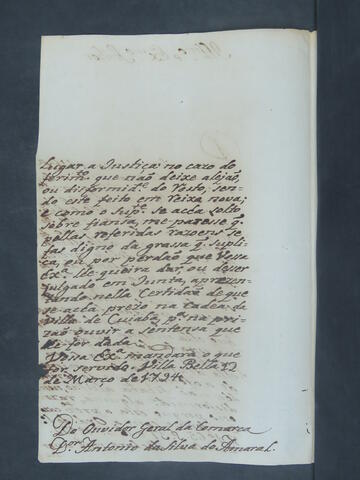 Lugar a Justiça no cazo do
ferim.to que não deixe alejaõ,
ou disformid.e do rosto, sen-
do este feito em reixa nova;
e como o Sup.e se acha solto
sobre fiansa, me paresse q̃
pellas referidas razoens se
fas digno da grassa q̃ supli-
ca, ou por perdaõ que Vossa
Ex.a lhe queira dar, ou de ser
julgado em Junta, aprezen-
tando nella Certidaõ de que
se acha prezo na cadea da
Villa de Cuiabá p.a na pri-
zaõ ouvir a sentensa que
lhe for dada.
Vossa Ex.a mandará o que
for servido. Villa Bella 12
de Março de 1794.
Do Ouvidor Geral da Comarca
D.or Antonio da Silva do Amaral.